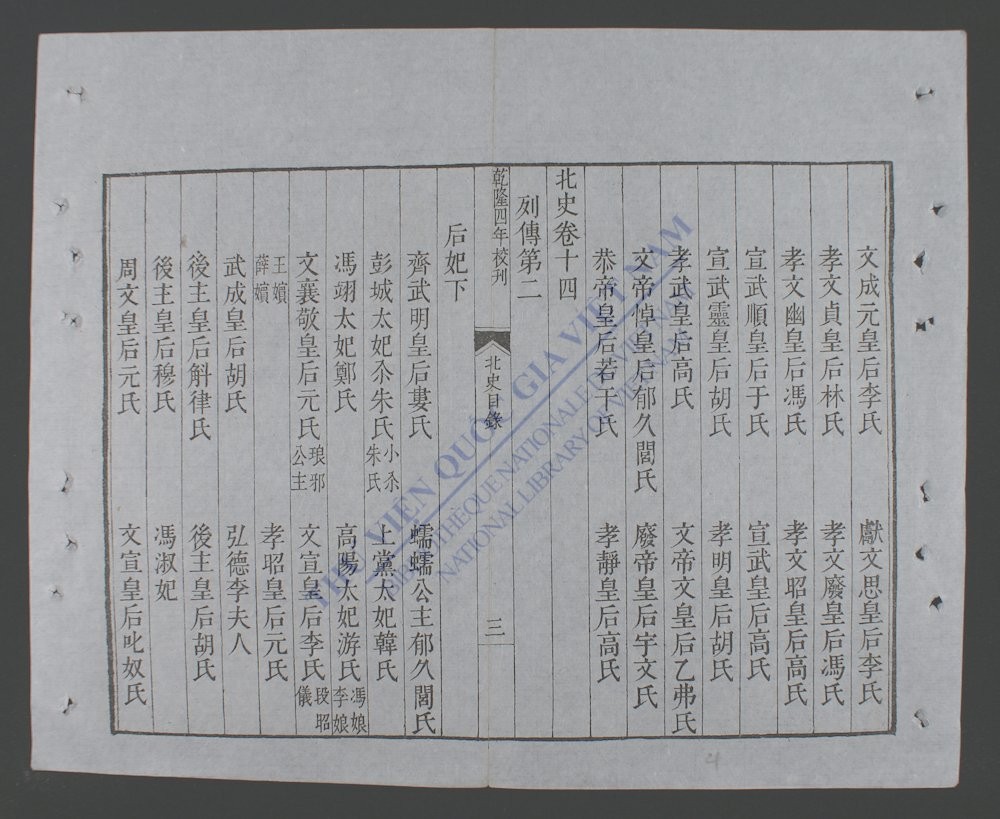 文成元皇后李氏 獻文思皇后李氏
孝文貞皇后林氏 孝文廢皇后馮氏
孝文幽皇后馮氏 孝文昭皇后高氏
宣武順皇后于氏 宣武皇后高氏
宣武靈皇后胡氏 孝明皇后胡氏
孝武皇后高氏 文帝文皇后乙弗氏
文帝悼皇后郁久閭氏 廢帝皇后宇文氏
恭帝皇后若干氏 孝靜皇后高氏
北史卷十四
列傳第二
乾隆四年校刊 北史目錄 三
后妃下
齊武明皇后婁氏 蠕蠕公主郁久閭氏
彭城太妃尒朱氏 小尒朱氏 上黨太妃韓氏
馮翊太妃鄭氏 高陽太妃游氏 馮娘李娘
文襄敬皇后元氏 琅邪公主 文宣皇后李氏 段昭儀
王嬪薛嬪 孝昭皇后元氏
武成皇后胡氏 弘德李夫人
後主皇后斛律氏 後主皇后胡氏
後主皇后穆氏 馮淑妃
周文皇后元氏 文宣皇后叱奴氏
THƯ VIỆN QUỐC GIA VIỆT NAM
BIBLIOTHÈQUE NATIONALE DU VIETNAM
NATIONAL LIBRARY OF VIETNAM